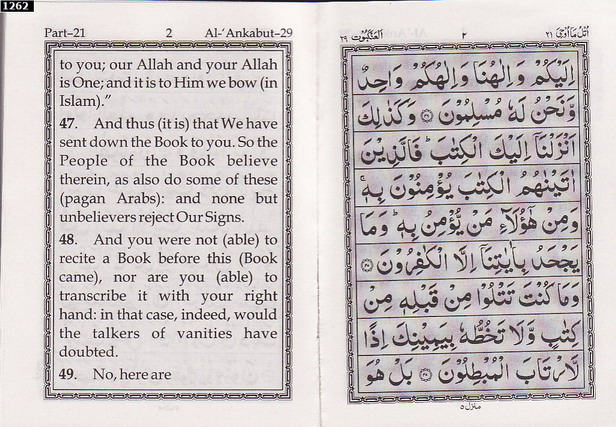 1262
Part–21 2 Al-‘Ankabut–29
to you; our Allah and your Allah
is One; and it is to Him we bow (in
Islam).”
47. And thus (it is) that We have
sent down the Book to you. So the
People of the Book believe
therein, as also do some of these
(pagan Arabs): and none but
unbelievers reject Our Signs.
48. And you were not (able) to
recite a Book before this (Book
came), nor are you (able) to
transcribe it with your right
hand: in that case, indeed, would
the talkers of vanities have
doubted.
49. No, here are
اُتْلُ مَآ اُوْحِیَ ٢١ ٢ اَلْعَنْكَبُوْت ٢٩
اِلَيْكُمْ وَاِلٰهُنَا وَاِلٰهُكُمْ وَاحِدٌ
وَّنَحْنُ لَهٗ مُسْلِمُوْنَ ۝٤٦ وَكَذٰلِكَ
اَنْزَلْنَآ اِلَيْكَ الْكِتٰبَ ؕ فَالَّذِيْنَ
اٰتَيْنٰهُمُ الْكِتٰبَ يُؤْمِنُوْنَ بِهٖ ۚ
وَمِنْ هٰٓؤُلَآءِ مَنْ يُّؤْمِنُ بِهٖ ؕ وَمَا
يَجْحَدُ بِاٰيٰتِنَآ اِلَّا الْكٰفِرُوْنَ ۝٤٧
وَمَا كُنْتَ تَتْلُوْا مِنْ قَبْلِهٖ مِنْ
كِتٰبٍ وَّلَا تَخُطُّهٗ بِيَمِيْنِكَ اِذًا
لَّارْتَابَ الْمُبْطِلُوْنَ ۝٤٨ بَلْ هُوَ
منزل ٥